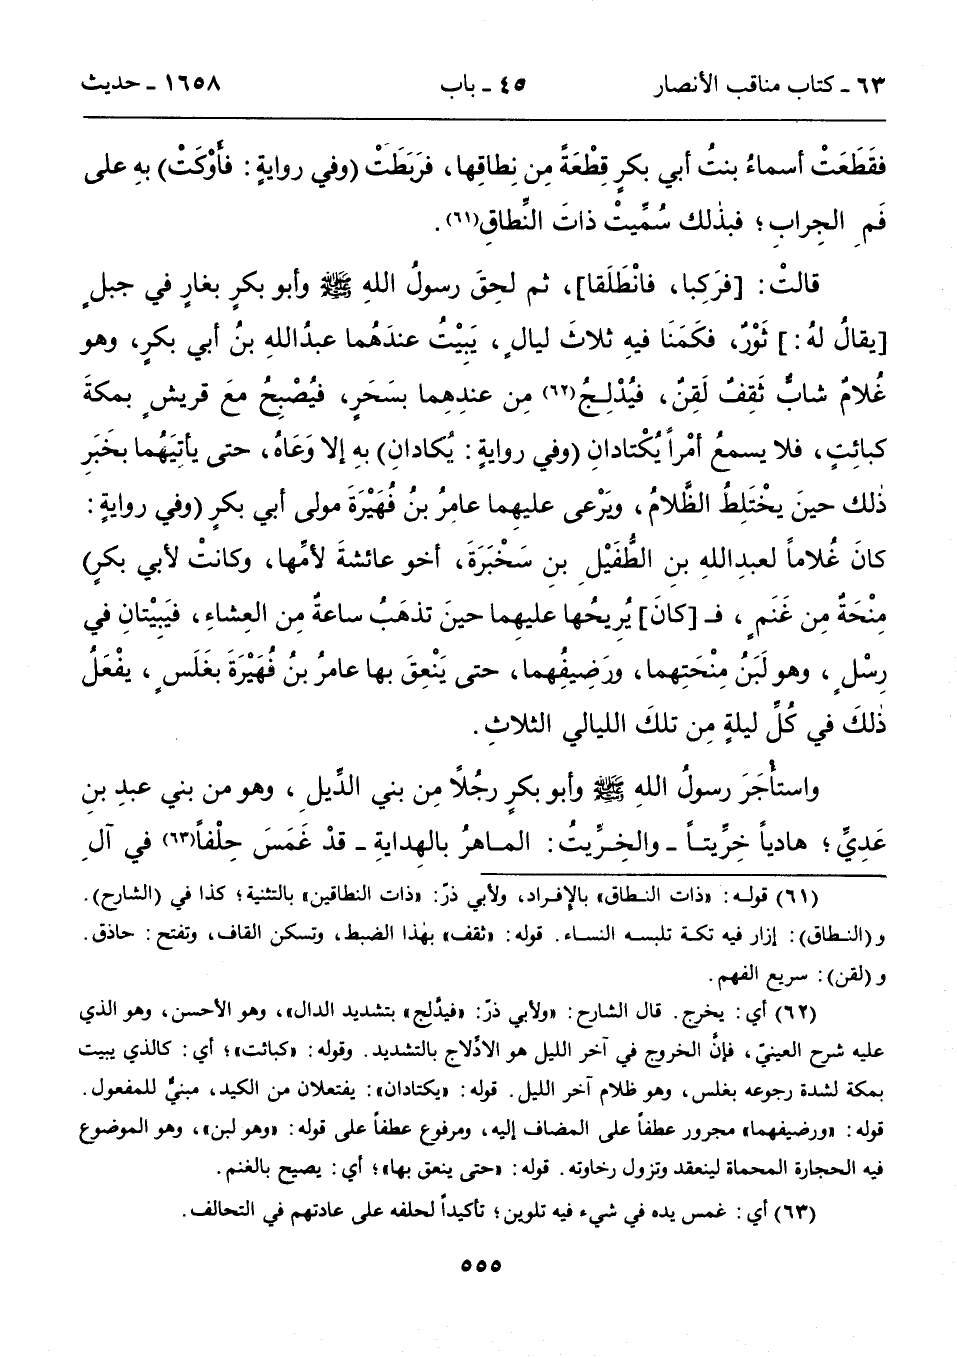 ٦٣ ـ كتاب مناقب الأنصار ٤٥ ـ باب ١٦٥٨ ـ حديث
فقَطَعَتْ أسماءُ بنتُ أبي بكرٍ قِطْعَةً مِن نِطاقِها، فرَبَطَتْ (وفي روايةٍ: فأَوْكَتْ) بهِ على
فَمِ الجِرابِ؛ فبذٰلك سُمِّيتْ ذاتَ النِّطاقِ(٦١).
قالتْ: [فرَكِبا، فانْطَلَقا]، ثم لحِقَ رسولُ اللهِ ﷺ وأبو بكرٍ بغارٍ في جبلٍ
[يقالُ لهُ:] ثَوْرٌ، فكَمَنَا فيهِ ثلاثَ ليالٍ، يَبِيْتُ عندَهُما عبدُاللهِ بنُ أبي بكرٍ، وهو
غُلامٌ شابٌّ ثَقِفٌ لَقِنٌ، فيُدْلِجُ(٦٢) مِن عندِهِما بسَحَرٍ، فيُصْبِحُ معَ قريشٍ بمكةَ
كبائتٍ، فلا يسمعُ أمْراً يُكْتادانِ (وفي روايةٍ: يُكادانِ) بهِ إلا وَعَاهُ، حتى يأتيَهُما بخَبَرِ
ذٰلك حينَ يخْتَلِطُ الظَّلامُ، ويَرْعى عليهِما عامِرُ بنُ فُهَيْرَةَ مولى أبي بكرٍ (وفي روايةٍ:
كانَ غُلاماً لعبدِاللهِ بنِ الطُّفَيْلِ بنِ سَخْبَرَةَ، أخو عائشةَ لأمِّها، وكانتْ لأبي بكرٍ)
مِنْحَةٌ مِن غَنَمٍ، فـ [كانَ] يُرِيحُها عليهِما حينَ تذهَبُ ساعةٌ مِن العِشاءِ، فيَبِيْتانِ في
رِسْلٍ، وهو لَبَنُ مِنْحَتِهِما، ورَضِيفُهِما، حتى يَنْعِقَ بها عامرُ بنُ فُهَيْرَةَ بغَلَسٍ، يفْعَلُ
ذٰلكَ في كُلِّ ليلةٍ مِن تلكَ الليالي الثلاثِ.
واستأْجَرَ رسولُ اللهِ ﷺ وأبو بكرٍ رجُلاً مِن بني الدِّيلِ، وهو من بني عبدِ بنِ
عَدِيٍّ؛ هادياً خِرِّيتاً ـ والخِرِّيتُ: الماهرُ بالهِدايةِ ـ قدْ غَمَسَ حِلْفاً(٦٣) في آلِ
(٦١) قوله: «ذات النطاق» بالإفراد، ولأبي ذرّ: «ذات النطاقين» بالتثنية؛ كذا في (الشارح).
و (النطاق): إزار فيه تكة تلبسه النساء. قوله: «ثقف» بهٰذا الضبط، وتسكن القاف، وتفتح: حاذق.
و (لقن): سريع الفهم.
(٦٢) أي: يخرج. قال الشارح: «ولأبي ذرّ: «فيدّلج» بتشديد الدال»، وهو الأحسن، وهو الذي
عليه شرح العينيّ، فإنَّ الخروج في آخر الليل هو الادِّلاج بالتشديد. وقوله: «كبائت»؛ أي: كالذي يبيت
بمكة لشدة رجوعه بغلس، وهو ظلام آخر الليل. قوله: «يكتادان»: يفتعلان من الكيد، مبنيٌّ للمفعول.
قوله: «ورضيفهما» مجرور عطفاً على المضاف إليه، ومرفوع عطفاً على قوله: «وهو لبن»، وهو الموضوع
فيه الحجارة المحماة لينعقد وتزول رخاوته. قوله: «حتى ينعق بها»؛ أي: يصيح بالغنم.
(٦٣) أي: غمس يده في شيء فيه تلوين؛ تأكيداً لحلفه على عادتهم في التحالف.
٥٥٥